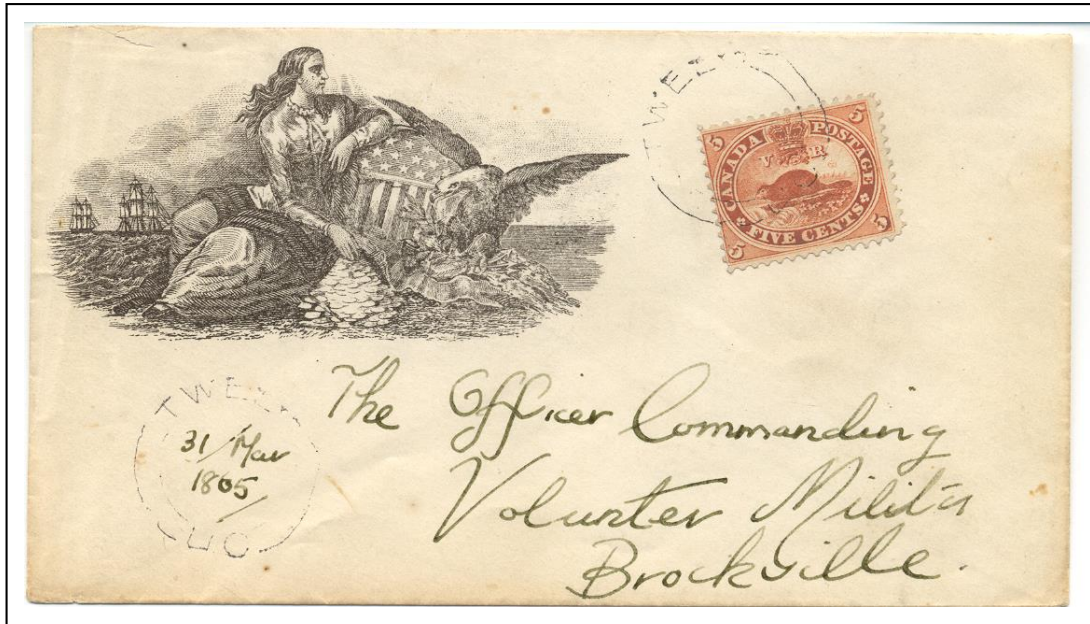 TWEED
5 5
CANADA POSTAGE
V R
FIVE CENTS
5 5
TWEED
31/Mar
1865
The Officer Commanding
Volunter Milita
Brockville.